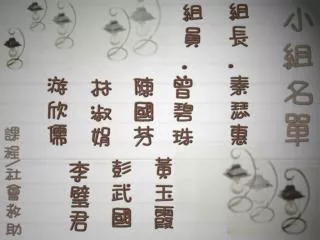 小組名單
組長.秦瑟惠
組員.曾碧珠
黃玉霞
陳國芬
彭武國
林淑娟
李璧君
游欣儒
課程/社會救助